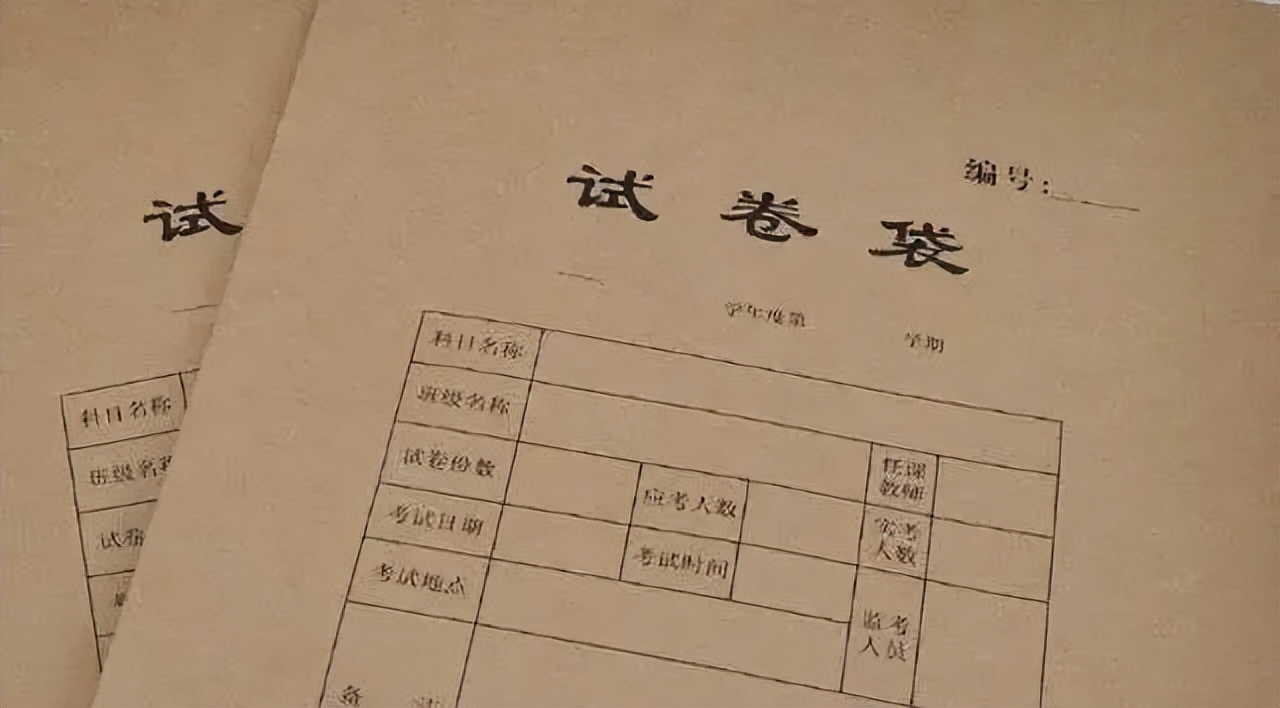 编号:
试卷袋
学年度第 学期
科目名称
班级名称 任课教师
试卷份数 应考人数 实考人数
考试日期 考试时间 监考人员
考试地点
备 注
试
科目名称
班级名称
试卷